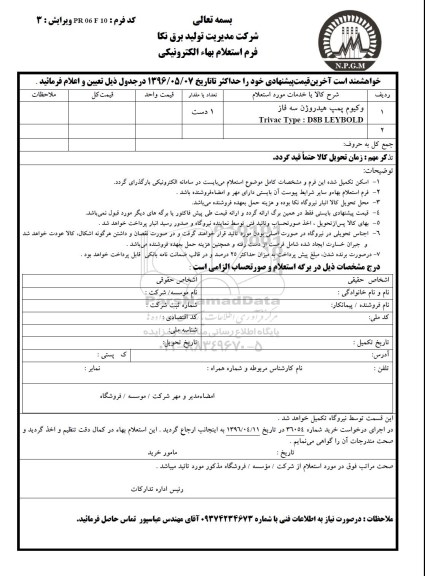 بسمه تعالی
کد فرم : PR 06 F 10 ویرایش : ۳
شرکت مدیریت تولید برق نکا
فرم استعلام بهاء الکترونیکی
N.P.G.M
خواهشمند است آخرین قیمت پیشنهادی خود را حداکثر تا تاریخ ۱۳۹۶/۰۵/۰۷ در جدول ذیل تعیین و اعلام فرمائید .
ردیف شرح کالا یا خدمات مورد استعلام تعداد یا مقدار قیمت واحد قیمت کل ملاحظات
۱ وکیوم پمپ هیدروژن سه فاز ۱ دست
Trivac Type : D8B LEYBOLD
۲
جمع کل به حروف:
تذکر مهم : زمان تحویل کالا حتماً قید گردد.
توضیحات:
۱- اسکن تکمیل شده این فرم و مشخصات کامل موضوع استعلام می‌بایست در سامانه الکترونیکی بارگذاری گردد.
۲- فرم استعلام بهاء و سایر شرایط پیوست آن بایستی دارای مهر و امضاء فروشنده باشد .
۳- محل تحویل کالا انبار نیروگاه نکا بوده و هزینه حمل بعهده فروشنده می‌باشد.
۴- قیمت پیشنهادی بایستی فقط در همین برگ ارائه گردد و ارائه قیمت طی پیش فاکتور یا برگه های دیگر مورد قبول نمی‌باشد.
۵- بهای کالا پس از تحویل ، اخذ صورتحساب و تائید فنی توسط نماینده نیروگاه و صدور رسید انبار پرداخت خواهد شد .
۶- اجناس تحویلی در نیروگاه در صورت اصلی بودن مورد تائید قرار خواهند گرفت و در صورت نقصان و داشتن هرگونه اشکال، کالا عودت خواهد شد
و جبران خسارت ایجاد شده شامل فرصت از دست رفته و همچنین هزینه حمل بعهده فروشنده می‌باشد .
۷- درصورت برنده شدن، مبلغ پیش پرداخت به میزان حداکثر ۲۵ درصد و در قالب ضمانت نامه بانکی قابل پرداخت خواهد بود .
درج مشخصات ذیل در برگه استعلام و صورتحساب الزامی است :
اشخاص حقیقی اشخاص حقوقی
نام و نام خانوادگی : نام موسسه/ شرکت :
نام فروشنده / پیمانکار: شماره ثبت شرکت :
کد ملی: کد اقتصادی :
شناسه ملی:
تاریخ تکمیل : تاریخ تحویل:
آدرس: ک پستی :
تلفن : نام کارشناس مربوطه و شماره همراه : نمابر :
امضاء مدیر و مهر شرکت / موسسه / فروشگاه
این قسمت توسط نیروگاه تکمیل خواهد شد .
در اجرای درخواست خرید شماره ۳۶۰۵۴ در تاریخ ۱۳۹۶/۰۴/۱۱ به اینجانب ارجاع گردید . این استعلام بهاء در کمال دقت تنظیم و اخذ گردید و
صحت مندرجات آن را گواهی می‌نمایم .
تاریخ : مامور خرید
صحت مراتب فوق در مورد استعلام از شرکت / مؤسسه / فروشگاه مذکور مورد تائید میباشد .
رئیس اداره تدارکات
ملاحظات : درصورت نیاز به اطلاعات فنی با شماره ۰۹۳۷۴۲۳۴۶۷۳ آقای مهندس عباسپور تماس حاصل فرمائید.